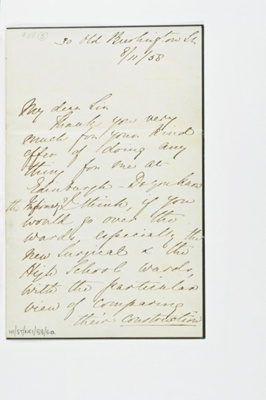 30 Old Burlington St.
8/11/58
My dear Sir
Thank you very
much for your kind
offer of doing any
thing for me at
Edinburgh - Do you know
the Infirmary? I think, if you
would go over the
wards, especially the
new Surgical & the
High School wards,
with the particular
view of comparing
their construction